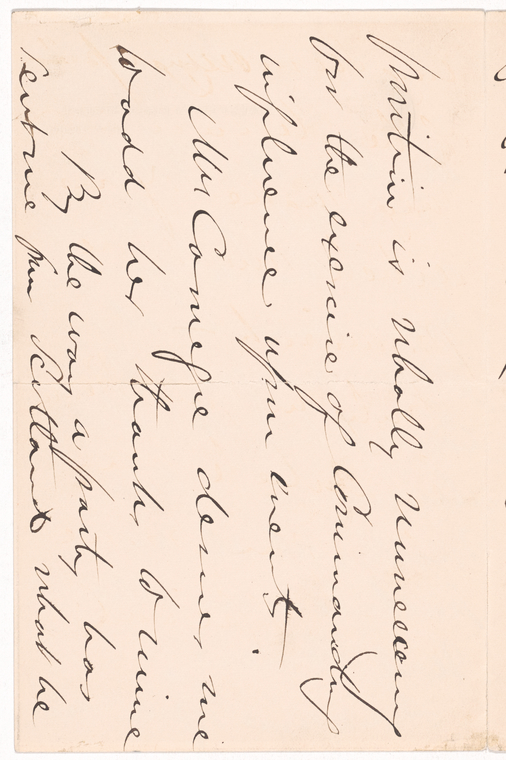 position is wholly unnecessary
for the exercise of Commanding
influence upon events.
Mrs Carnegie desires me
to add her thanks to mine
By the way a party has
sent me from Scotland what he